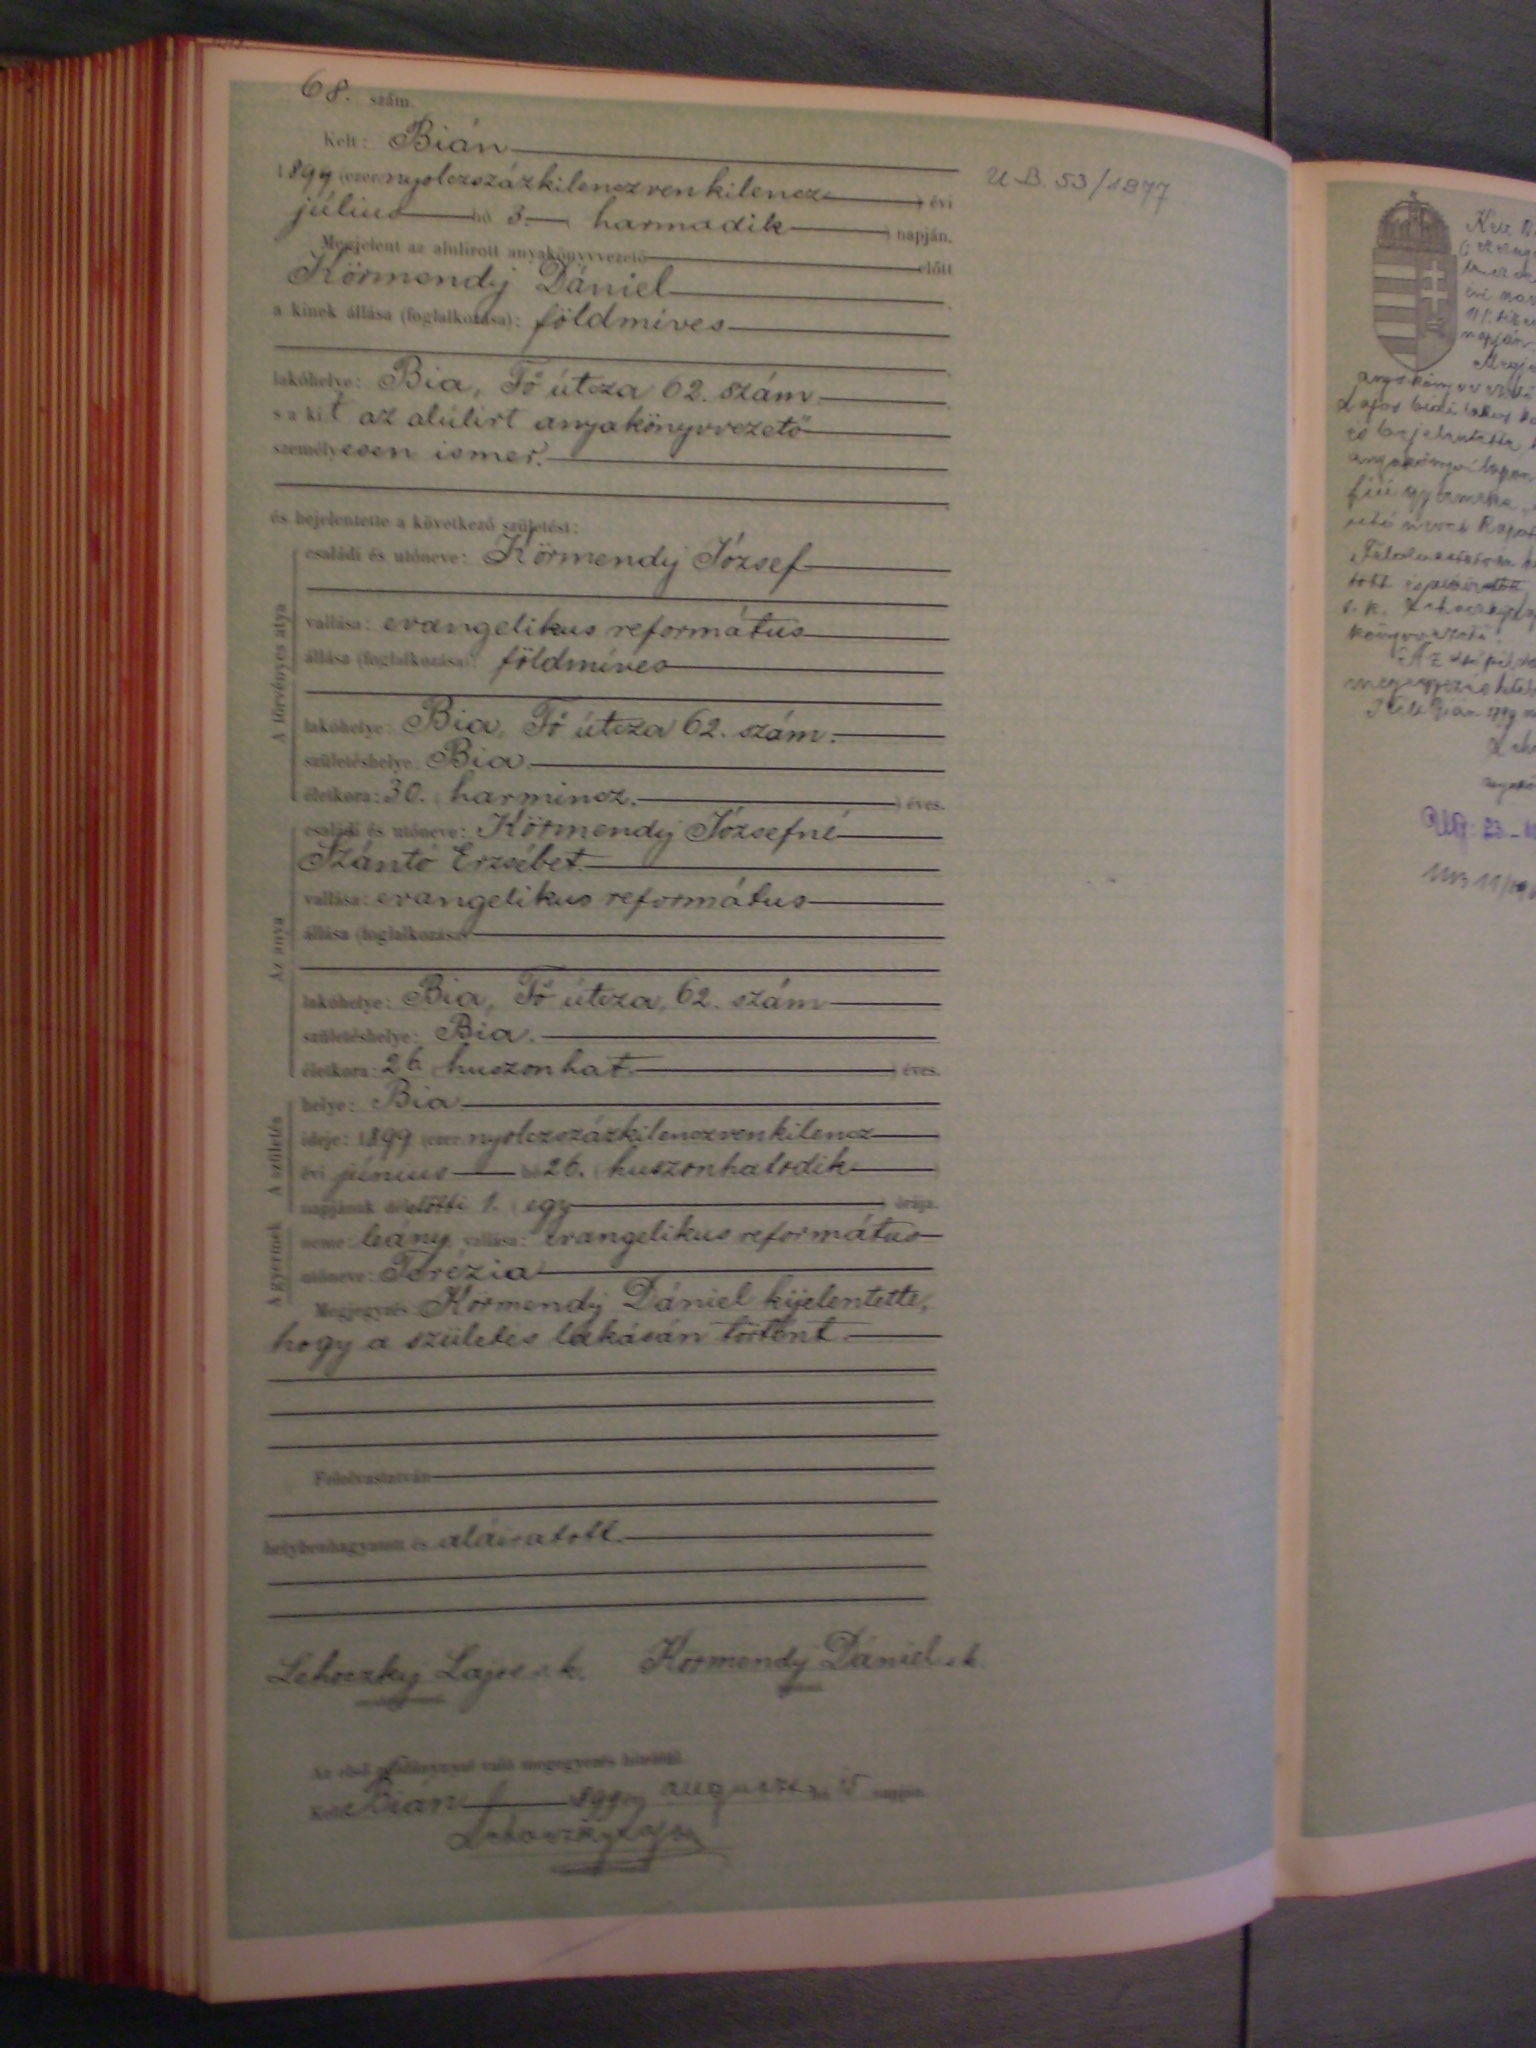 68. szám.
Kelt: Bián
1899 (ezer nyolczszázkilenczvenkilencz) évi
július hó 3. ( harmadik ) napján.
Megjelent az alulírott anyakönyvvezető előtt
Körmendy Dániel
a kinek állása (foglalkozása): földmíves
lakóhelye: Bia, Fő útcza 62. szám.
s a kit az alúlirt anyakönyvvezető
személyesen ismer.
és bejelentette a következő születést:
A törvényes atya
családi és utóneve: Körmendy József
vallása: evangelikus református
állása (foglalkozása): földmíves
lakóhelye: Bia, Fő útcza 62. szám.
születéshelye: Bia
életkora: 30. ( harmincz. ) éves.
Az anya
családi és utóneve: Körmendy Józsefné
Szántó Erzsébet.
vallása: evangelikus református
állása (foglalkozása):
lakóhelye: Bia, Fő útcza, 62. szám
születéshelye: Bia.
életkora: 26. ( huszonhat. ) éves.
A születés
helye: Bia
ideje: 1899 (ezer nyolczszázkilenczvenkilencz
évi június hó 26. ( huszonhatodik
napjának délelőtti 1. ( egy ) órája.
A gyermek
neme: leány, vallása: evangelikus református
utóneve: Terézia
Megjegyzés: Körmendy Dániel kijelentette,
hogy a születés lakásán történt.
Felolvastatván
helybenhagyatott és aláiratott.
Lehoczky Lajos s. k. Körmendy Dániel s. k.
Az első példánynyal való megegyezés hiteléül.
Kelt Bián 1899 évi auguszt hó 15 napján.
Lehoczky Lajos
U.B. 53/1977
Kelt
Megje
anyakönyvvezető
Lajos biai lakos
és bejelentette
fiú gyermeke
tott és aláiratott
s. k. Lehoczky
könyvvezető.
Az első pél
megegyezés hitel